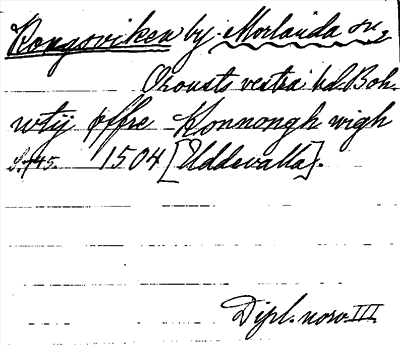 Kongsviken by. Morlanda sn,
Orousts västra hd. Boh.
wtij offre Konnongh wigh
S. 745 1504 [Uddevalla].
Dipl. norv. III